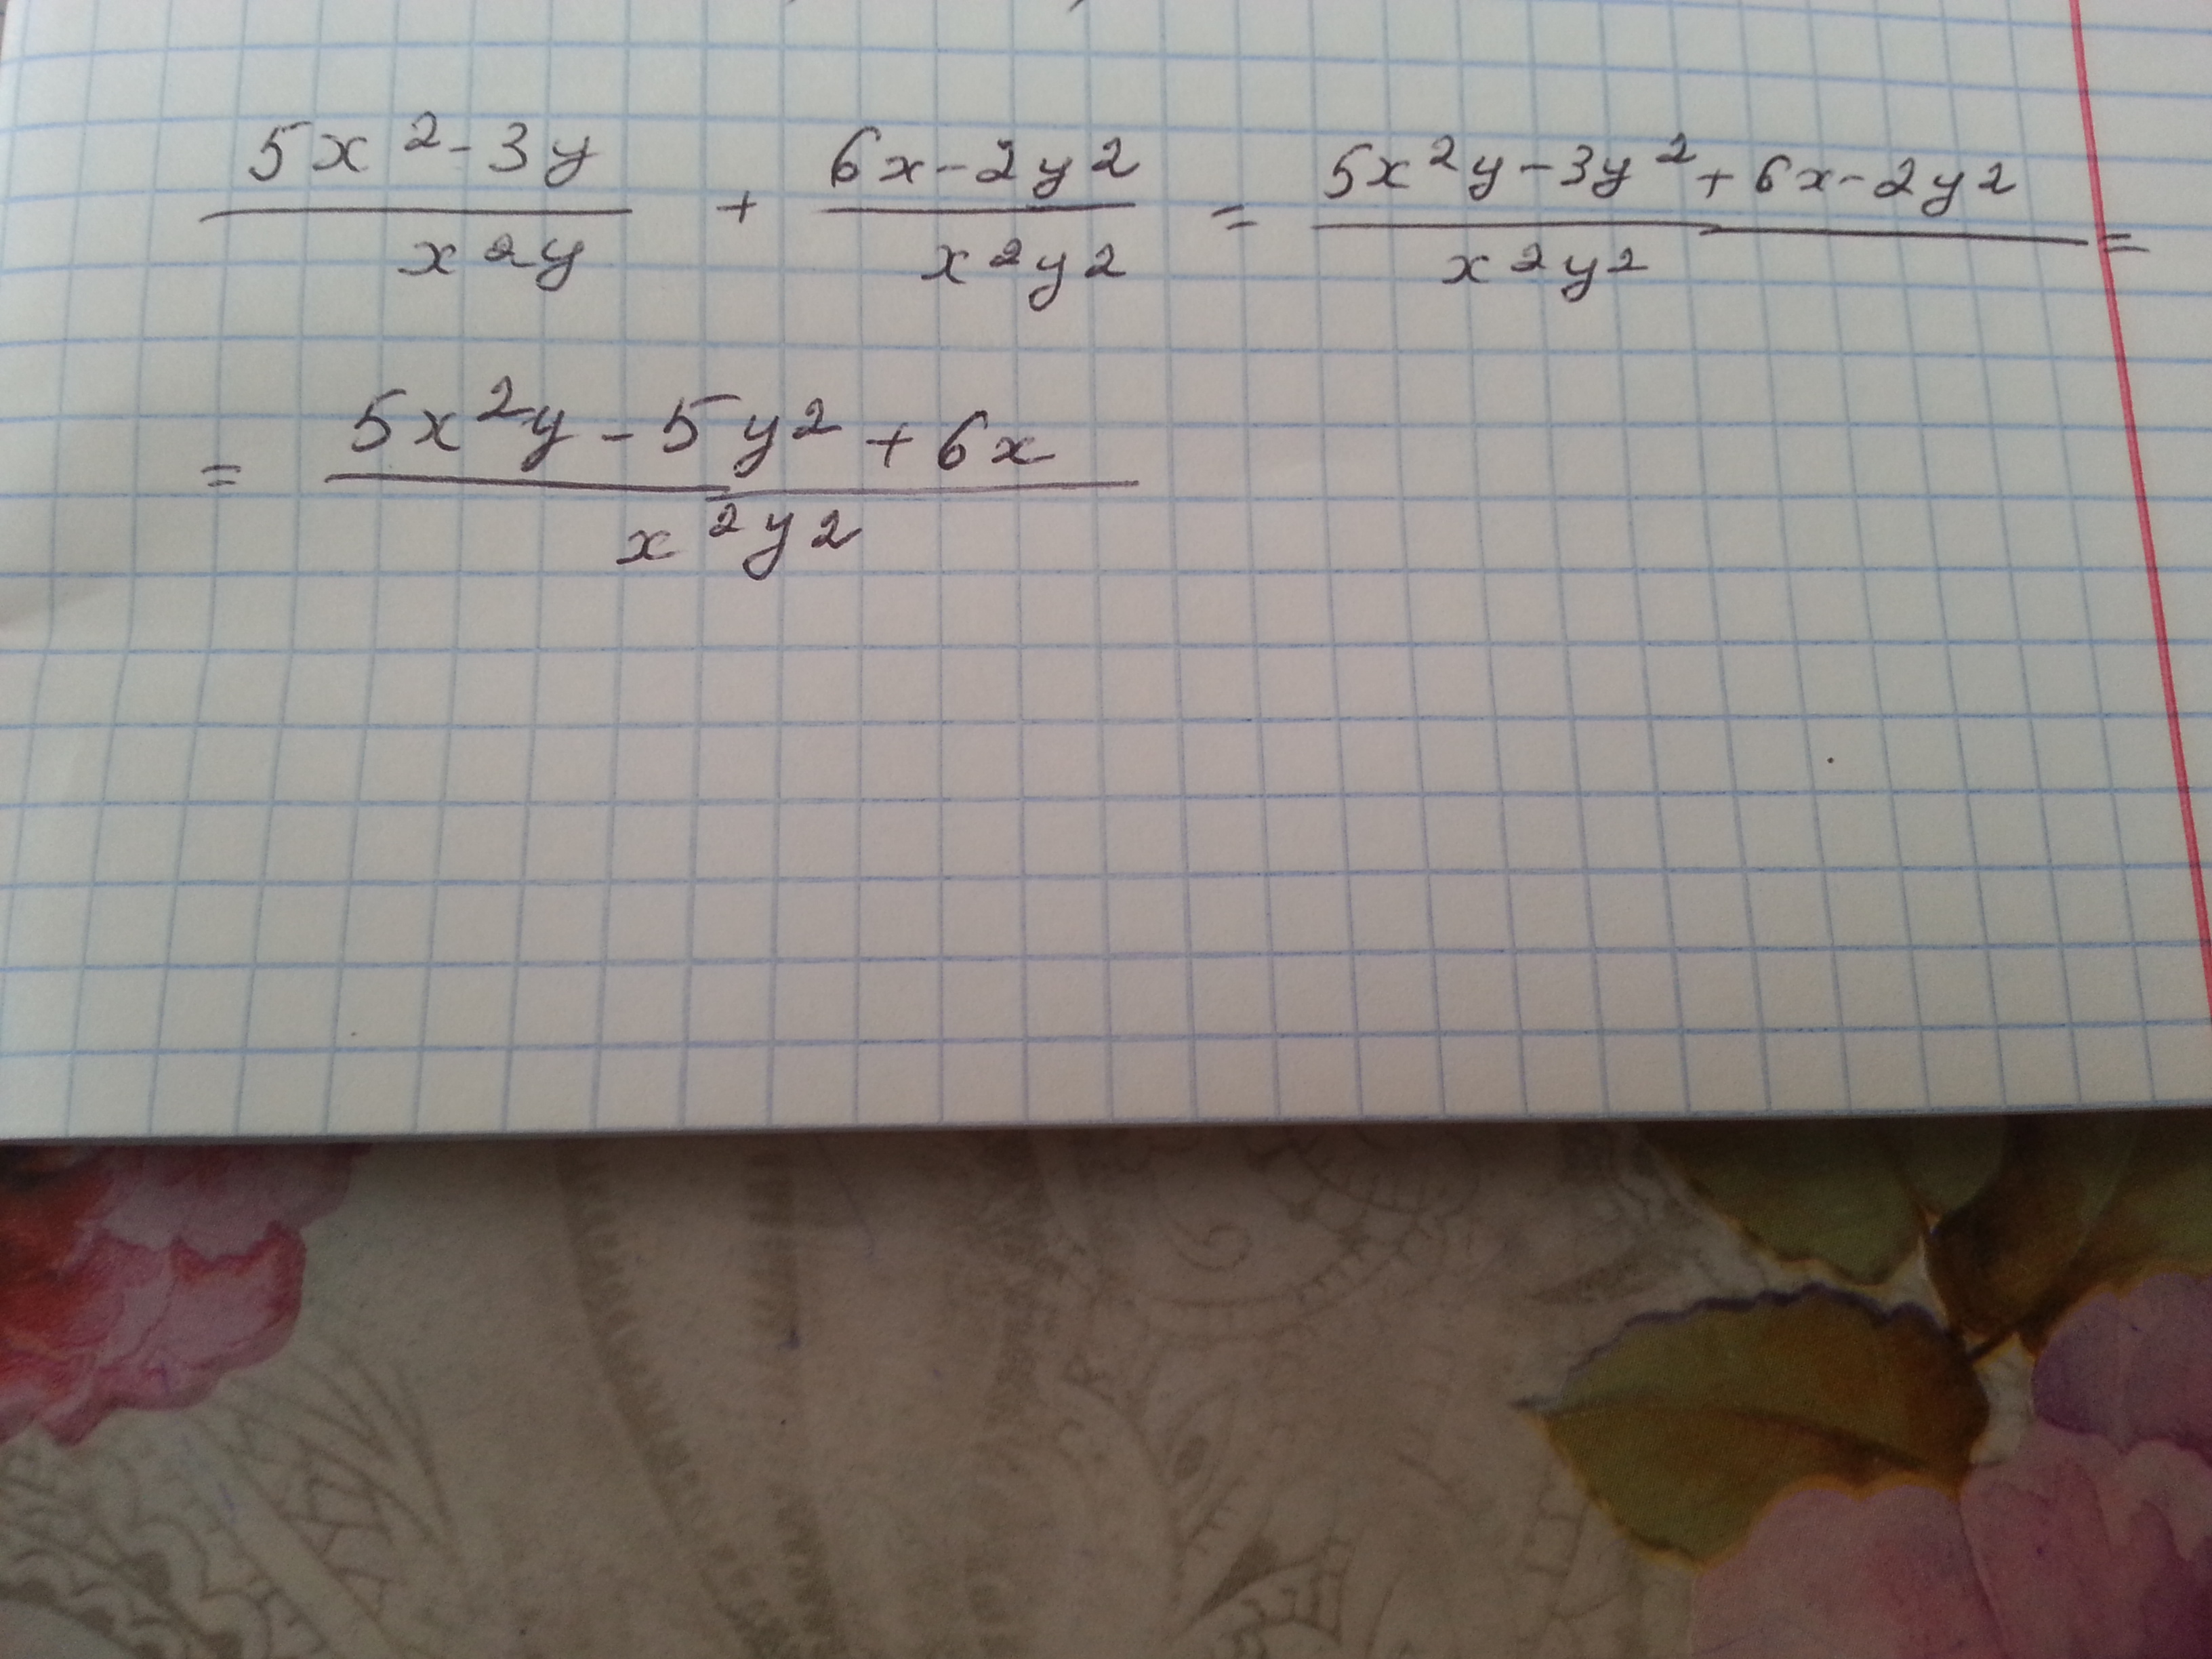 (5x²-3y)/(x²y) + (6x-2y²)/(x²y²) = (5x²y-3y²+6x-2y²)/(x²y²) =
= (5x²y-5y²+6x)/(x²y²)